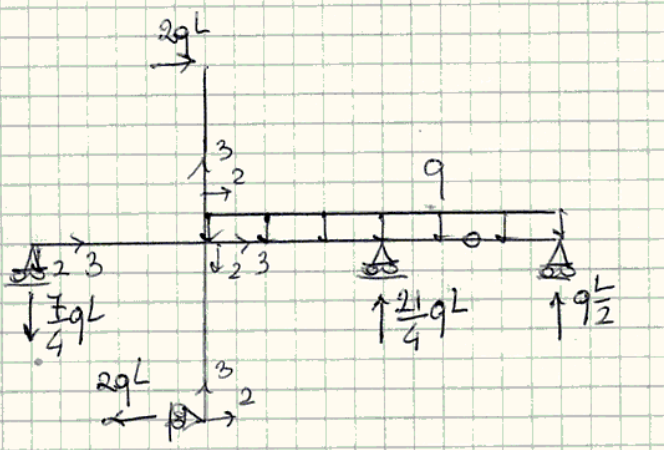 2qL
3
2
q
2 3
2 3
7/4 qL
21/4 qL
q L/2
2qL
3
2